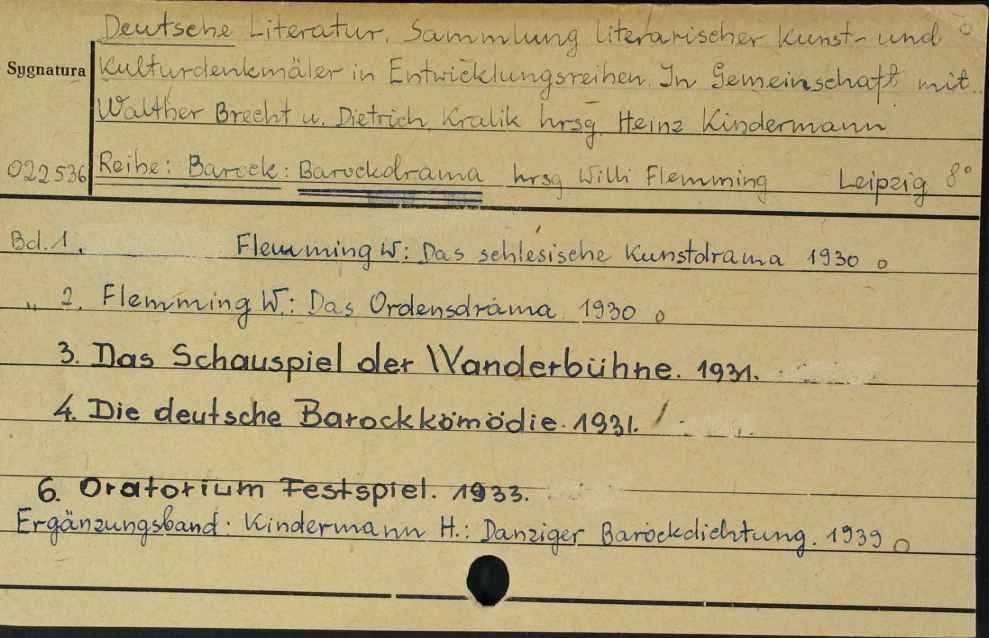 Deutsche Literatur. Sammlung literarischer Kunst- und
Sygnatura Kulturdenkmäler in Entwicklungsreihen. In Gemeinschaft mit
Walther Brecht u. Dietrich Kralik hrsg. Heinz Kindermann
022536 Reihe: Barock: Barockdrama hrsg Willi Flemming Leipzig 8°
Bd. 1. Flemming W: Das schlesische Kunstdrama 1930
" 2. Flemming W.: Das Ordensdrama 1930
3. Das Schauspiel der Wanderbühne. 1931.
4. Die deutsche Barockkömödie. 1931.
6. Oratorium Festspiel. 1933.
Ergänzungsband: Kindermann H.: Danziger Barockdichtung. 1939